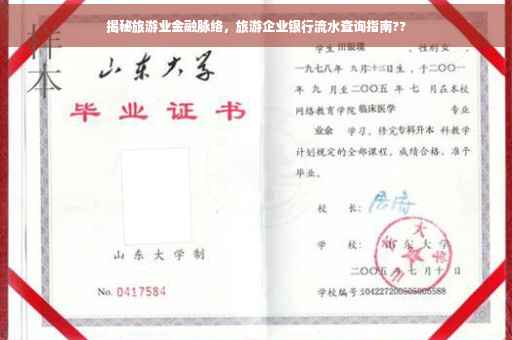 揭秘旅游业金融脉络，旅游企业银行流水查询指南??
样本
山东大学
毕业证书
山东大学制
No. 0417584
学生 性别女，
一九七八年九月十三日生，于二〇〇一
年九月至二〇〇五年七月在本校
网络教育学院临床医学 专业
业余 学习，修完专科升本科教学
计划规定的全部课程，成绩合格，准予
毕业。
校 长：
学 校：山东大学
二〇〇五年七月十日
学校编号：